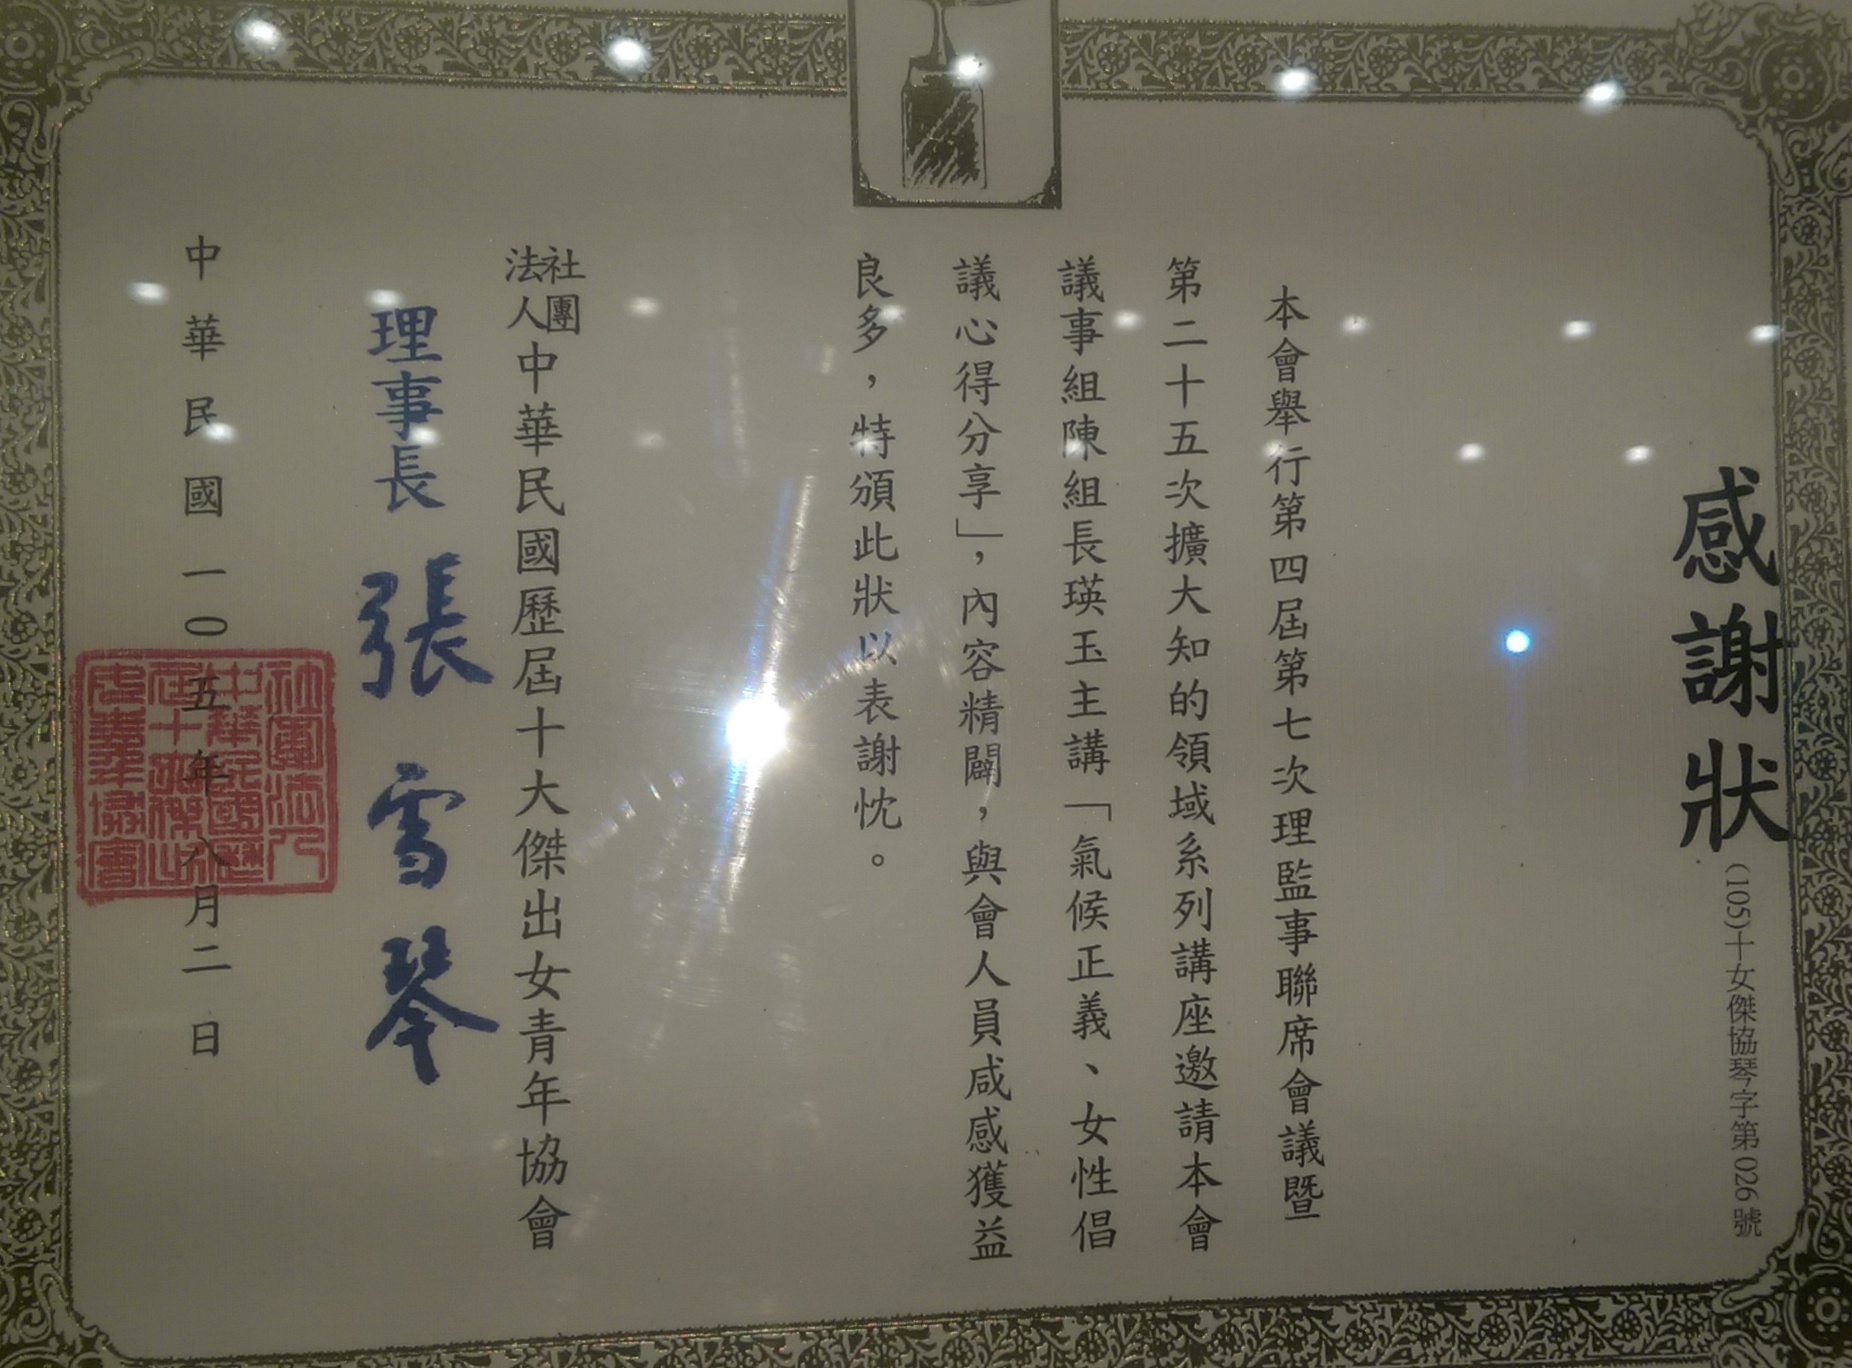 感謝狀
(105)十女傑協琴字第026號
本會舉行第四屆第七次理監事聯席會議暨
第二十五次擴大知的領域系列講座邀請本會
議事組陳組長瑛玉主講「氣候正義、女性倡
議心得分享」，內容精闢，與會人員咸感獲益
良多，特頒此狀以表謝忱。
社團法人中華民國歷屆十大傑出女青年協會
理事長 張雪琴
中華民國一〇五年八月二日
社團法人
中華民國歷
屆十大傑出
女青年協會